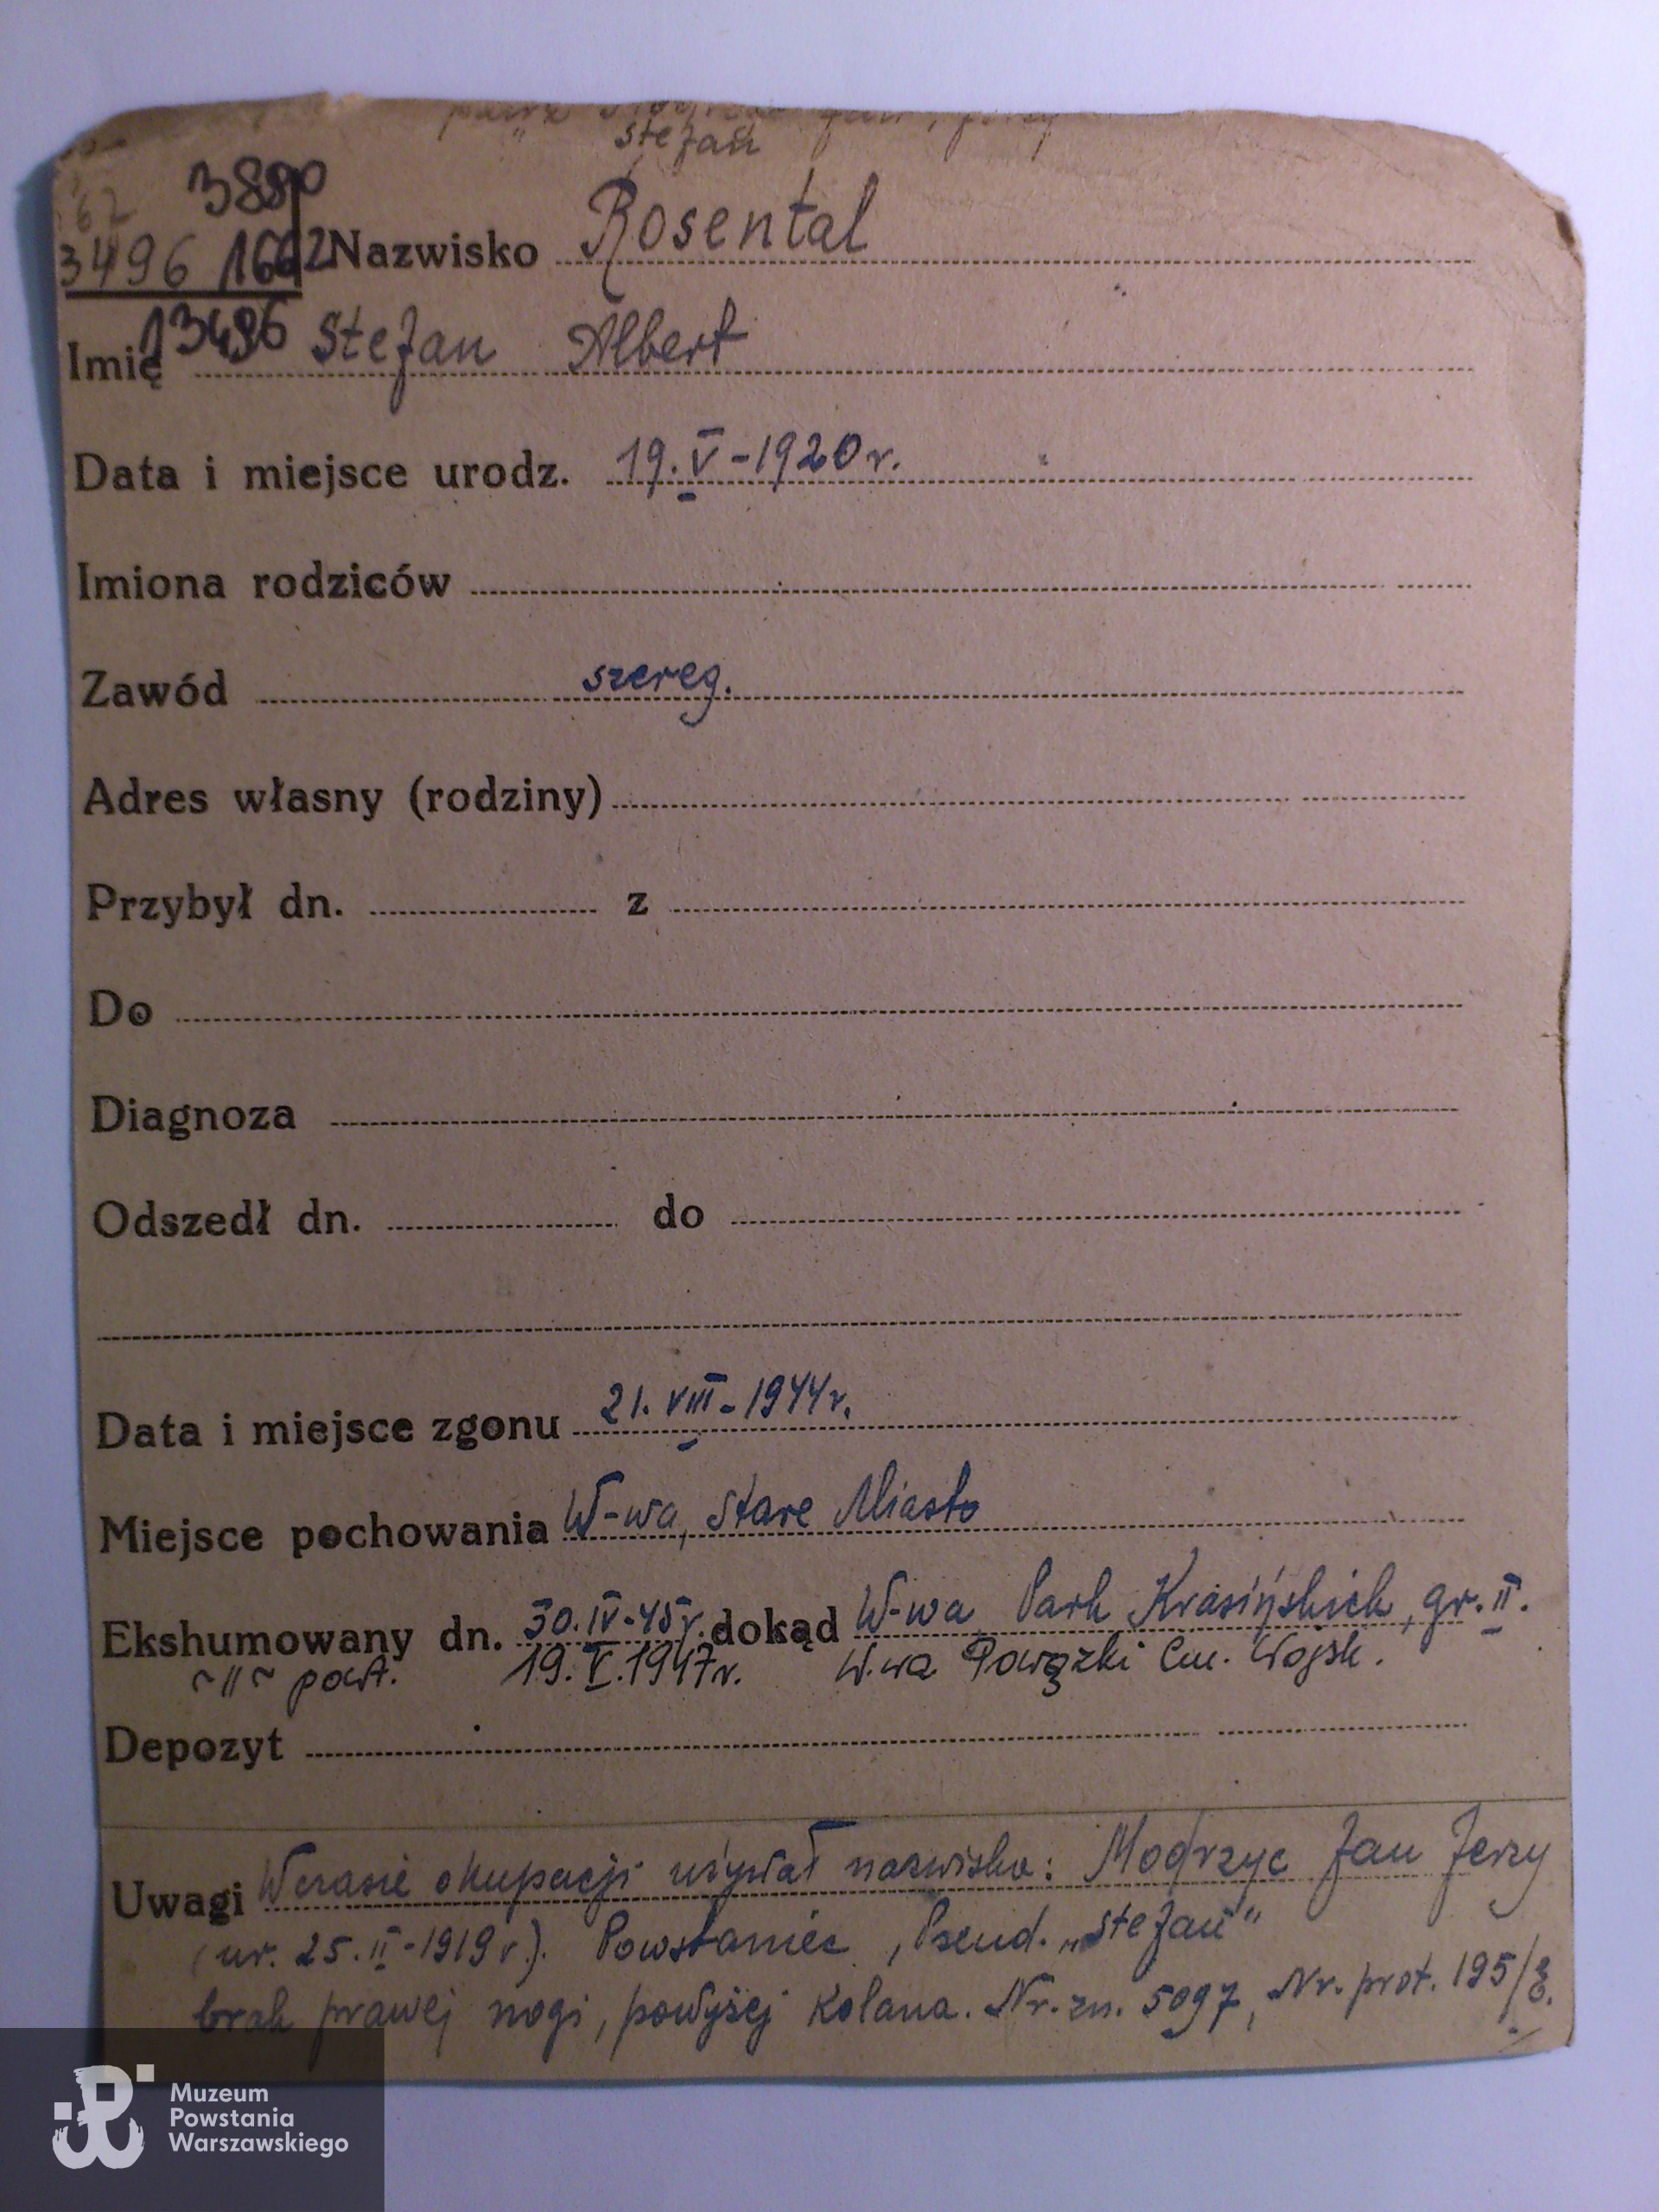 Stefan
62 3880
3496 1662 Nazwisko Rosental
13496
Imię Stefan Albert
Data i miejsce urodz. 19.V-1920r.
Imiona rodziców
Zawód szereg.
Adres własny (rodziny)
Przybył dn. z
Do
Diagnoza
Odszedł dn. do
Data i miejsce zgonu 21.VIII-1944r.
Miejsce pochowania W-wa, Stare Miasto
Ekshumowany dn. 30.IV-45r. dokąd W-wa Park Krasińskich, gr. II.
~"~ powt. 19.V.1947r. W.wa Powązki Cm. Wojsk.
Depozyt
Uwagi W czasie okupacji używał nazwisko: Modrzyc Jan Jerzy
(ur. 25.II-1919r.). Powstaniec, Pseud. „Stefan"
brak prawej nogi, powyżej kolana. Nr. zn. 5097, Nr. prot. 195/E.
Muzeum
Powstania
Warszawskiego